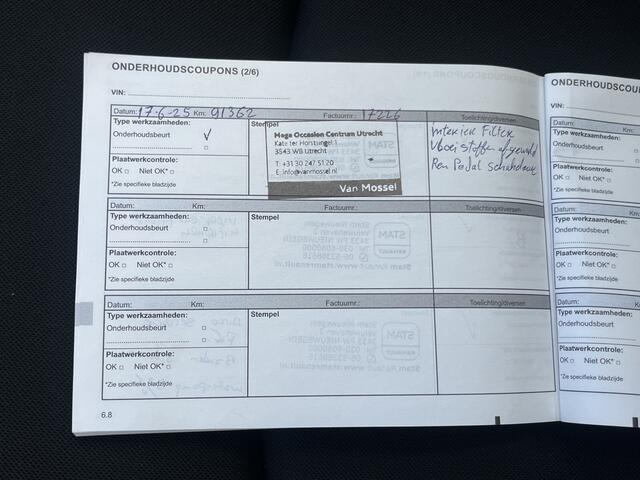 ONDERHOUDSCOUPONS (2/6)
VIN:
Datum: 17-6-25 Km: 91362 Factuurnr.: 17226 Toelichting/diversen
Type werkzaamheden:
Onderhoudsbeurt √
Stempel
Mega Occasion Centrum Utrecht
Kate ter Horstsingel 1
3543 WB Utrecht
T: +31 30 247 51 20
E: info@vanmossel.nl
Van Mossel
Interieur Filter
Vloeistoffen
Rem Pedal
Plaatwerkcontrole:
OK □ Niet OK* □
*Zie specifieke bladzijde
Datum: Km: Factuurnr.: Toelichting/diversen
Type werkzaamheden:
Onderhoudsbeurt □
Stempel
Plaatwerkcontrole:
OK □ Niet OK* □
*Zie specifieke bladzijde
Datum: Km: Factuurnr.: Toelichting/diversen
Type werkzaamheden:
Onderhoudsbeurt □
Stempel
Plaatwerkcontrole:
OK □ Niet OK* □
*Zie specifieke bladzijde
6.8
ONDERHOUDSCOU
VIN:
Datum:
Type werkzaamheden:
Onderhoudsbeurt
Plaatwerkcontrole:
OK □ Niet OK* □
*Zie specifieke bladzijde
Datum:
Type werkzaamheden:
Onderhoudsbeurt
Plaatwerkcontrole:
OK □ Niet OK* □
*Zie specifieke bladzijde
Datum:
Type werkzaamheden:
Onderhoudsbeurt
Plaatwerkcontrole:
OK □ Niet OK* □
*Zie specifieke bladzijde